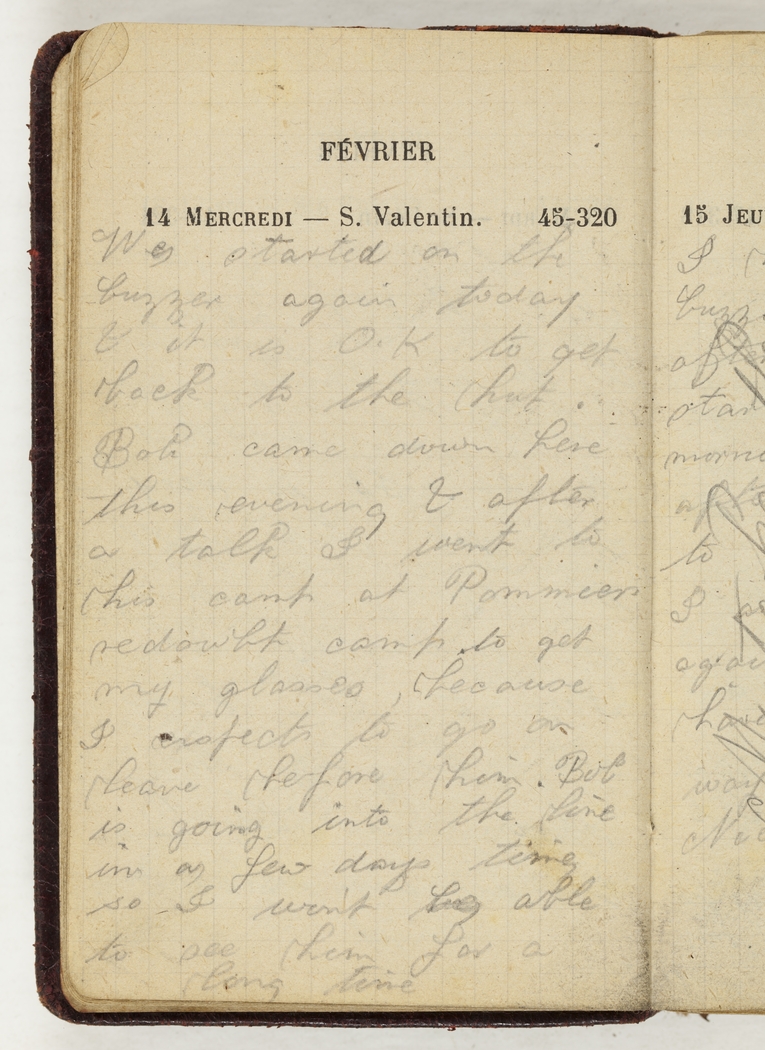 FÉVRIER
14 MERCREDI — S. Valentin. 45-320
We started on the
buzzer again today
& it is O.K to get
back to the hut.
Bob came down here
this evening & after
a talk I went to
his camp at Pommiers
redoubt camp to get
my glasses, because
I expects to go on
leave before him. Bob
is going into the line
in a few days time
so I won't be able
to see him for a
long time
15 JEU
I
buzz
after
star
morn
afte
to
I as
agai
have
way